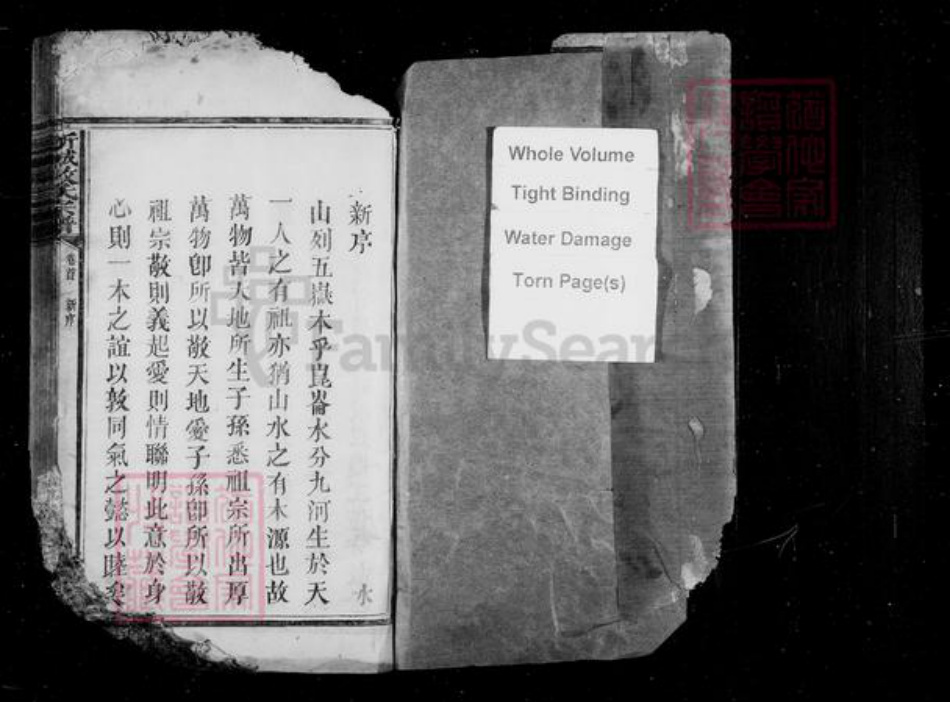 新序
山列五嶽本乎崑崙水分九河生於天
一人之有祖亦猶山水之有本源也故
萬物皆天地所生子孫悉祖宗所出厚
萬物卽所以敬天地愛子孫卽所以敬
祖宗敬則義起愛則情聯明此意於身
心則一本之誼以敦同氣之懿以睦矣
卷首 新序
Whole Volume
Tight Binding
Water Damage
Torn Page(s)
FamilySearch